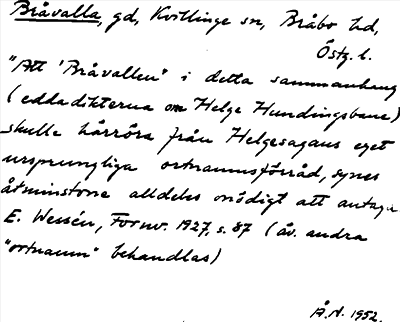 Bråvalla, gd, Kvillinge sn, Bråbo hd,
Östg. l.
"Att 'Bråvallen' i detta sammanhang
(eddadikterna om Helge Hundingsbane)
skulle härröra från Helgesagans eget
ursprungliga ortnamnsförråd, synes
åtminstone alldeles onödigt att antaga
E. Wessén, Fornv. 1927, s. 87 (äv. andra
"ortnamn" behandlas)
Å.N. 1952.